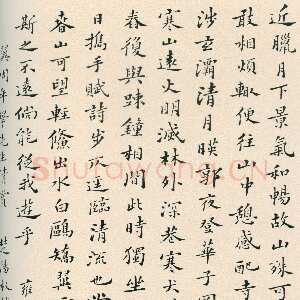 近臘下景氣和暢故山殊可
敢相煩輒便往山中憩感配寺
涉玄灞清月暎郭夜登華子岡
寒山遠火明滅林外深巷寒犬
舂復與疎鐘相間此時獨坐
日攜手賦詩步仄逕臨清流也
春山可望輕鯈出水白鷗矯翼
斯之不遠倘能從我遊乎 雍
Shufawang.CN